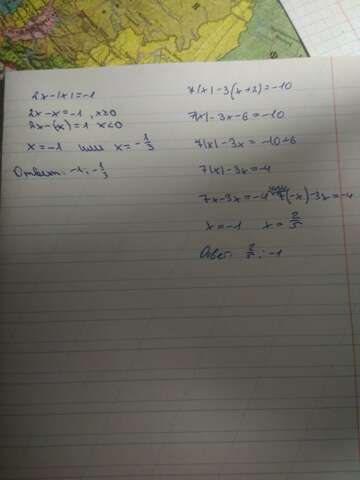 2x-|x|=-1
2x-x=-1, x≥0
2x-(x)=1 x<0
x=-1 или x=-1/3
Ответ: -1; -1/3
7|x|-3(x+2)=-10
7|x|-3x-6=-10
7|x|-3x=-10+6
7|x|-3x=-4
7x-3x=-4 7(-x)-3x=-4
x=-1 x=2/5
Ответ: 2/5; -1